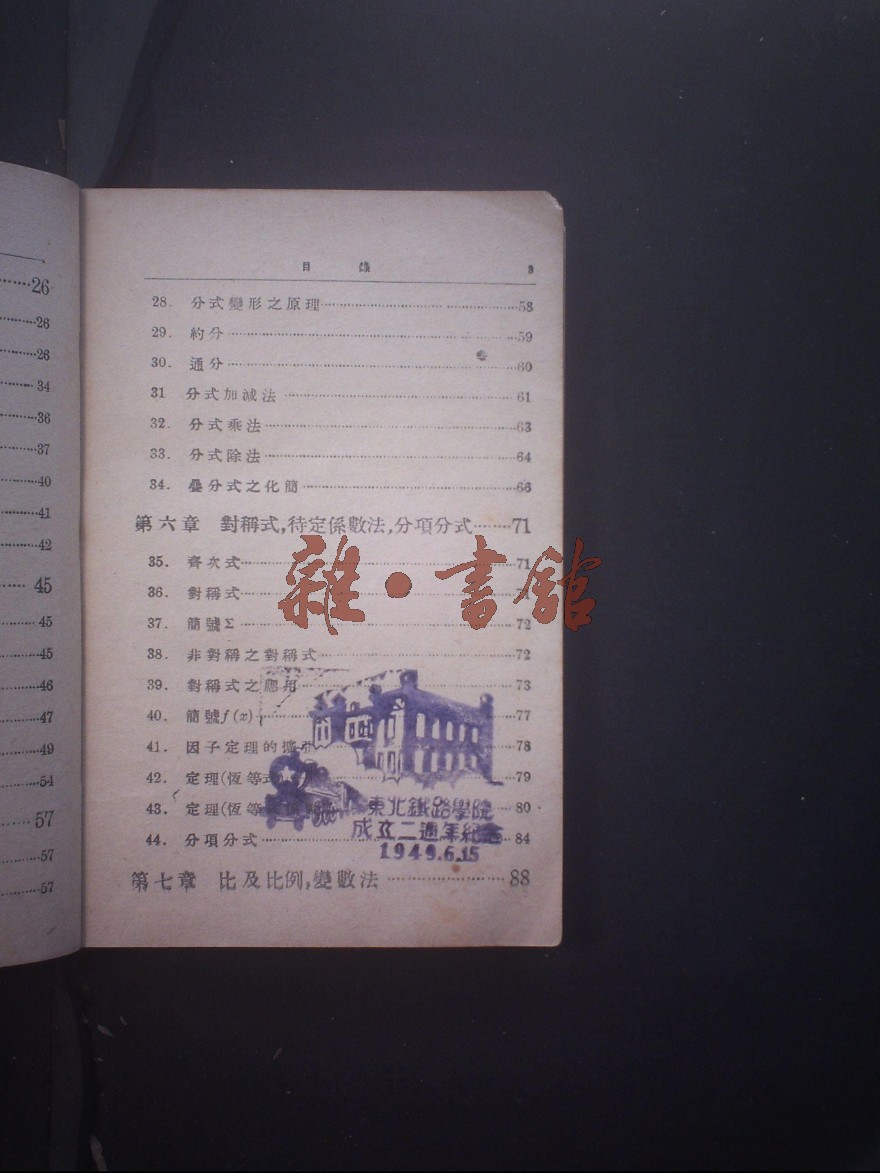 26
26
26
34
36
37
40
41
42
45
45
45
46
47
49
54
57
57
57
目 錄 3
28. 分式變形之原理 58
29. 約分 59
30. 通分 60
31 分式加減法 61
32. 分式乘法 63
33. 分式除法 64
34. 疊分式之化簡 66
第六章 對稱式,待定係數法,分項分式 71
35. 齊次式 71
36. 對稱式
37. 簡號Σ 72
38. 非對稱之對稱式 72
39. 對稱式之應用 73
40. 簡號f(x) 77
41. 因子定理的擴 78
42. 定理(恆等式 79
43. 定理(恆等 80
44. 分項分式 84
第七章 比及比例,變數法 88
雜·書館
東北鐵路學院
成立二週年紀念
1949.6.15